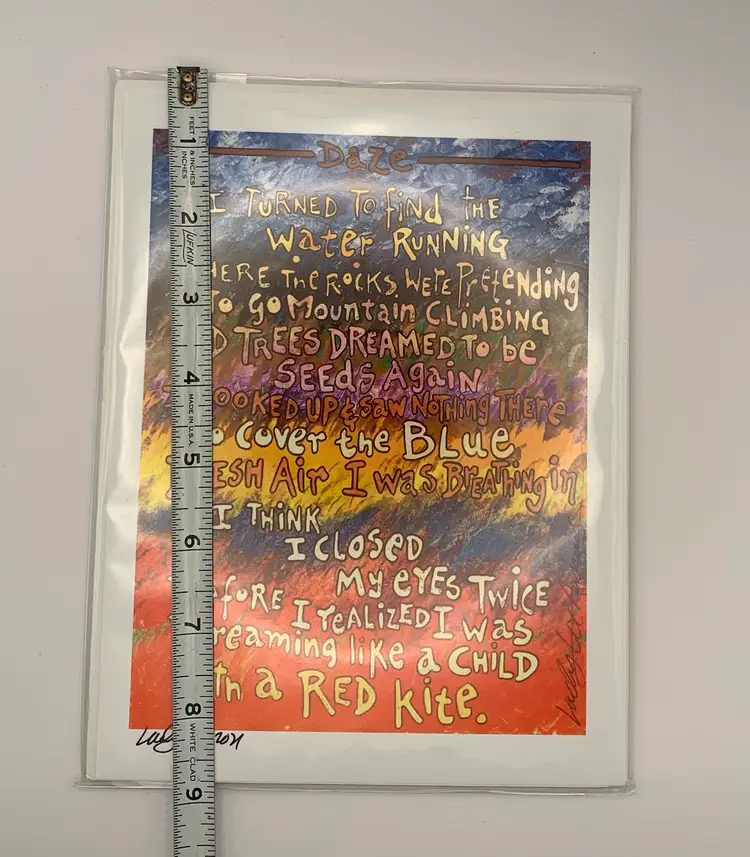 Daze
I TURNED To find THE
Water RUNNING
HERE THE ROCKS WERE PretENDING
To go Mountain CLiMBiNG
D TREES DREAMED To be
SEEdS Again
OOKED UP & Saw NoTHiNg THERE
o COVER the BLUE
ESH Air I was BrEATHingin
I THiNK
I CLOSED
My EYES TWiCE
fORE I rEALiZED I was
reaming like a CHiLD
th a RED kite.
FEET
& INCHES
INCHES
1
2
LUFKIN
3
4
MADE IN U.S.A.
5
6
7
8
WHITE CLAD
9